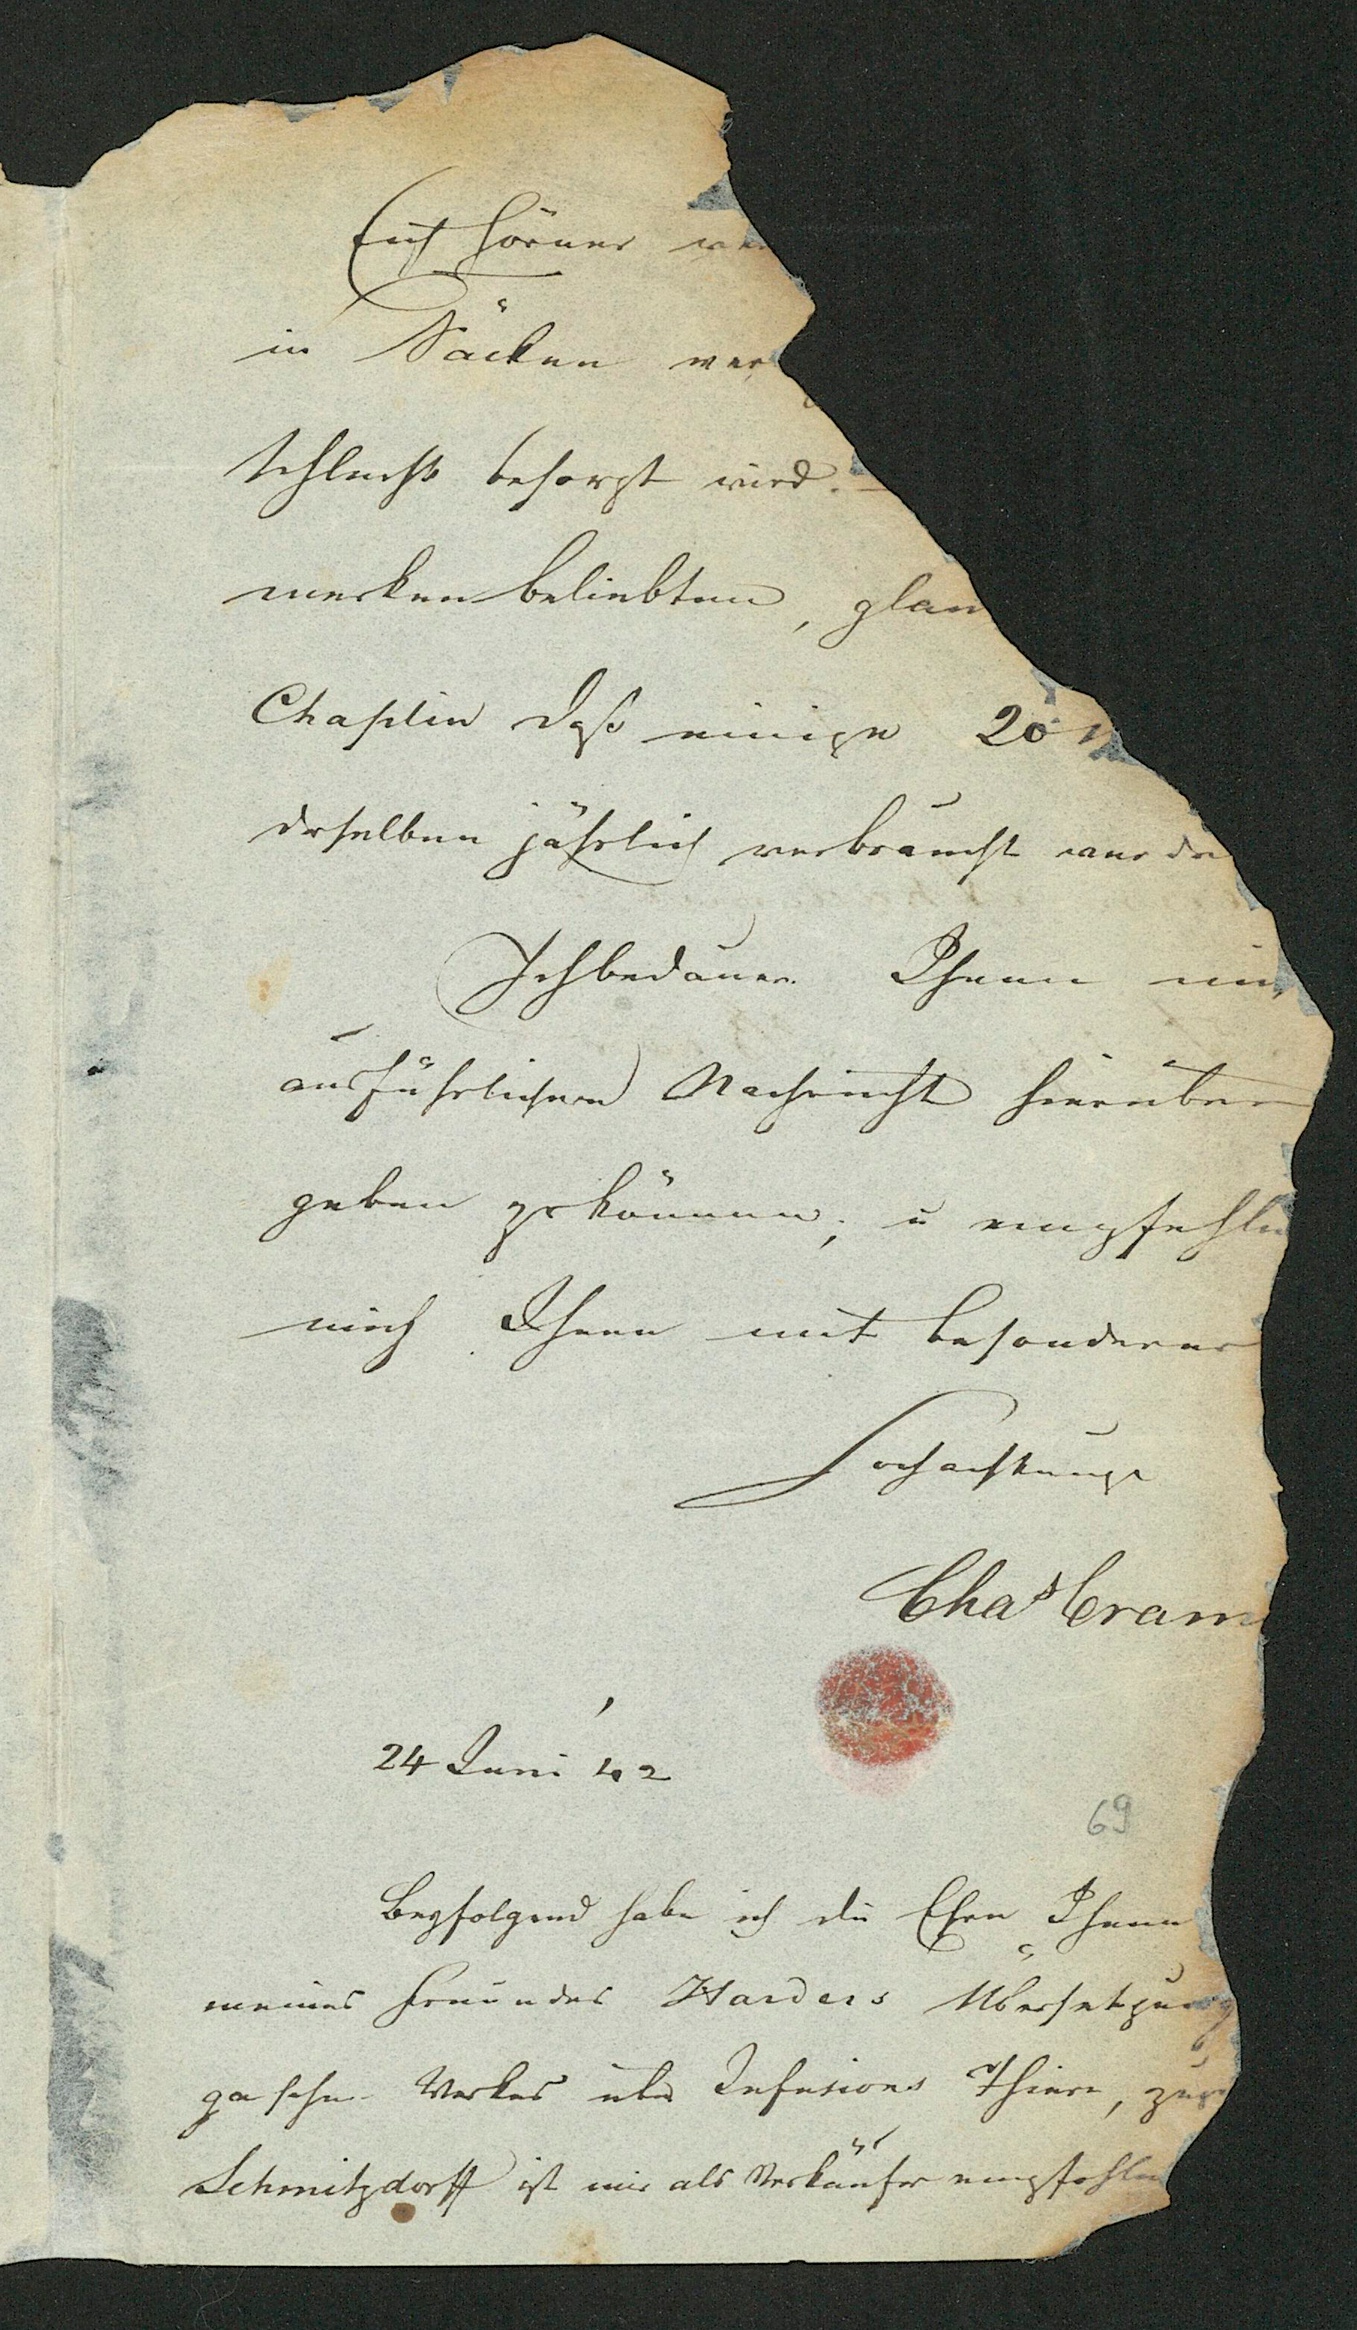 Auch Hörner wer
in Säcken ver
schlecht besorgt wird. –
merken beliebten, glau
Chaplin daß einige 20
derselben jährlich verbraucht werde
Ich bedauere Ihnen nic
ausführlichere Nachricht hierüber
geben zu können; u empfehle
mich Ihnen mit besonderer
Hochachtung
Chas Cram
24 Juni 42
69
Beyfolgend habe ich die Ehre Ihnen
meines Freundes Harders Übersetzung
Werkes über Infusions Thiere,
Schmitzdorff ist mir als Verkäufer empfohlen